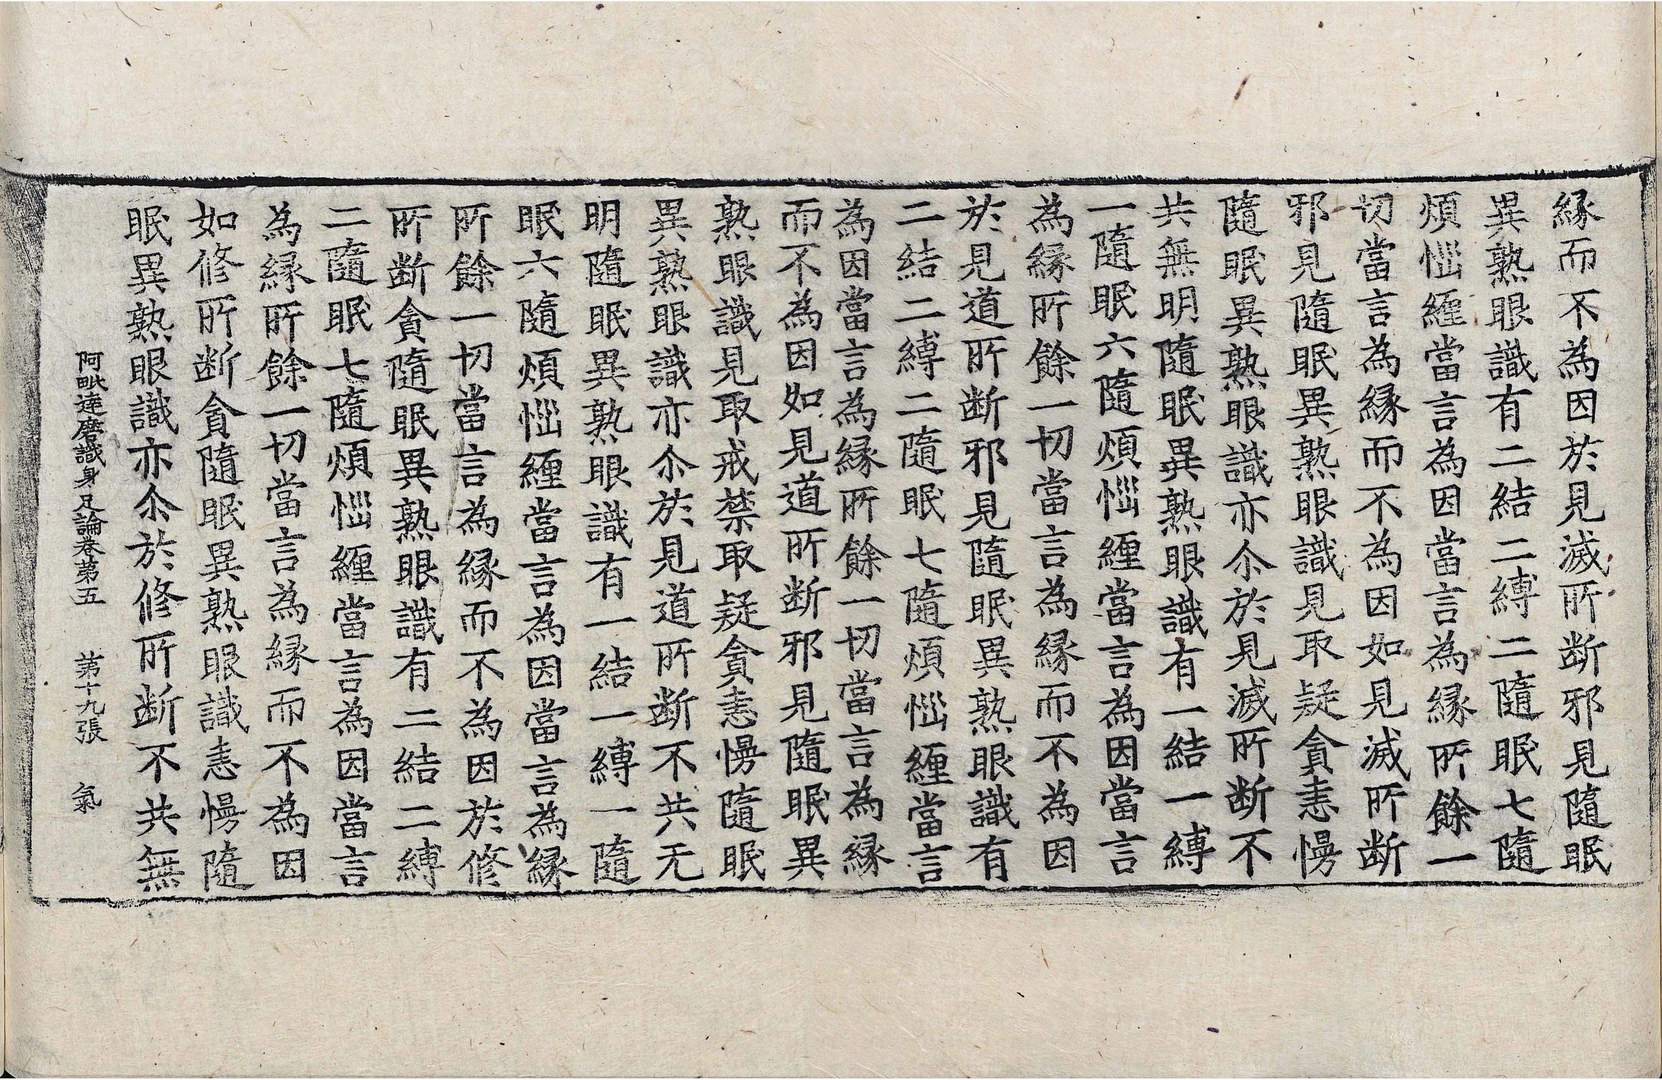 縁而不為因於見滅所断邪見隨眠
異熟眼識有二結二縛二隨眠七隨
煩惱纏當言為因當言為縁所餘一
切當言為縁而不為因如見滅所断
邪見隨眠異熟眼識見取疑貪恚慢
隨眠異熟眼識亦尒於見滅所断不
共無明隨眠異熟眼識有一結一縛
一隨眠六隨煩惱纏當言為因當言
為縁所餘一切當言為縁而不為因
於見道所断邪見隨眠異熟眼識有
二結二縛二隨眠七隨煩惱纏當言
為因當言為縁所餘一切當言為縁
而不為因如見道所断邪見隨眠異
熟眼識見取戒禁取疑貪恚慢隨眠
異熟眼識亦尒於見道所断不共无
明隨眠異熟眼識有一結一縛一隨
眠六隨煩惱纏當言為因當言為縁
所餘一切當言為縁而不為因於修
所断貪隨眠異熟眼識有二結二縛
二隨眠七隨煩惱纏當言為因當言
為縁所餘一切當言為縁而不為因
如修所断貪隨眠異熟眼識恚慢隨
眠異熟眼識亦尒於修所断不共無
阿毗達磨識身足論卷第五　第十九張　氣